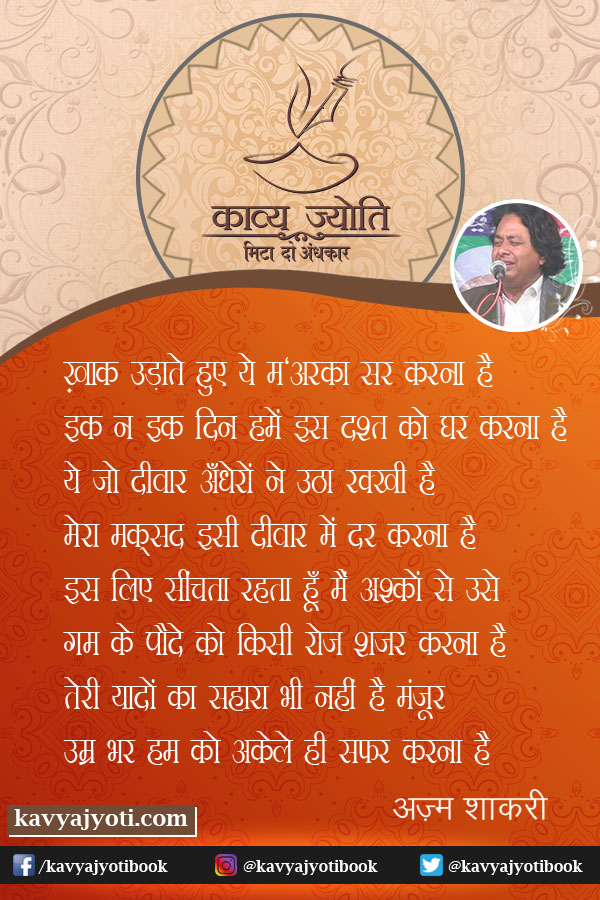 काव्य ज्योति
मिटा दो अंधकार
ख़ाक उड़ाते हुए ये म‘अरका सर करना है
इक न इक दिन हमें इस दश्त को घर करना है
ये जो दीवार अँधेरों ने उठा रक्खी है
मेरा मक़्सद इसी दीवार में दर करना है
इस लिए सींचता रहता हूँ मैं अश्कों से उसे
गम के पौदे को किसी रोज शजर करना है
तेरी यादों का सहारा भी नहीं है मंजूर
उम्र भर हम को अकेले ही सफर करना है
अज़्म शाकरी
kavyajyoti.com
/kavyajyotibook @kavyajyotibook @kavyajyotibook